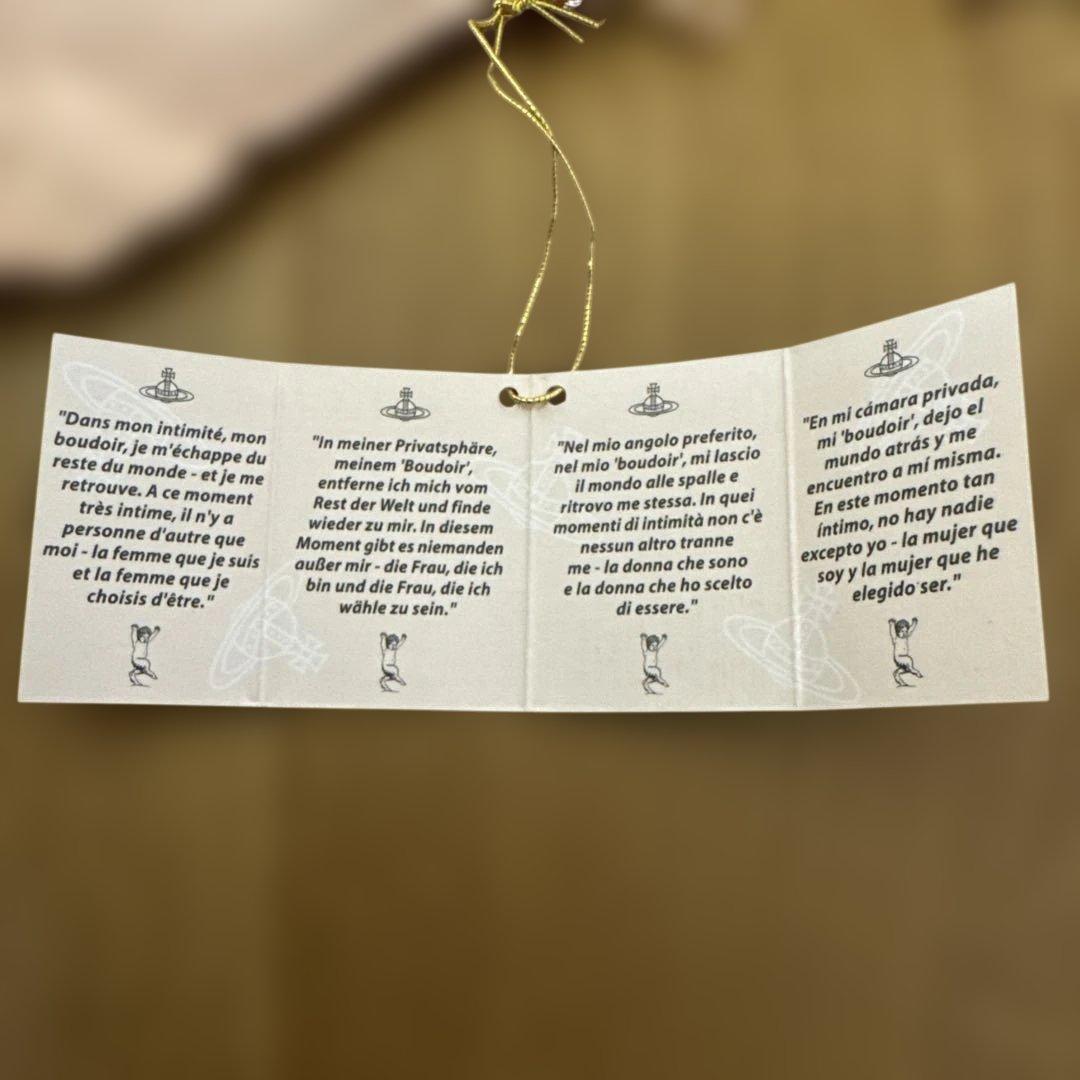 "Dans mon intimité, mon
boudoir, je m'échappe du
reste du monde - et je me
retrouve. A ce moment
très intime, il n'y a
personne d'autre que
moi - la femme que je suis
et la femme que je
choisis d'être."
"In meiner Privatsphäre,
meinem 'Boudoir',
entferne ich mich vom
Rest der Welt und finde
wieder zu mir. In diesem
Moment gibt es niemanden
außer mir - die Frau, die ich
bin und die Frau, die ich
wähle zu sein."
"Nel mio angolo preferito,
nel mio 'boudoir', mi lascio
il mondo alle spalle e
ritrovo me stessa. In quei
momenti di intimità non c'è
nessun altro tranne
me - la donna che sono
e la donna che ho scelto
di essere."
"En mi cámara privada,
mi 'boudoir', dejo el
mundo atrás y me
encuentro a mí misma.
En este momento tan
íntimo, no hay nadie
excepto yo - la mujer que
soy y la mujer que he
elegido ser."